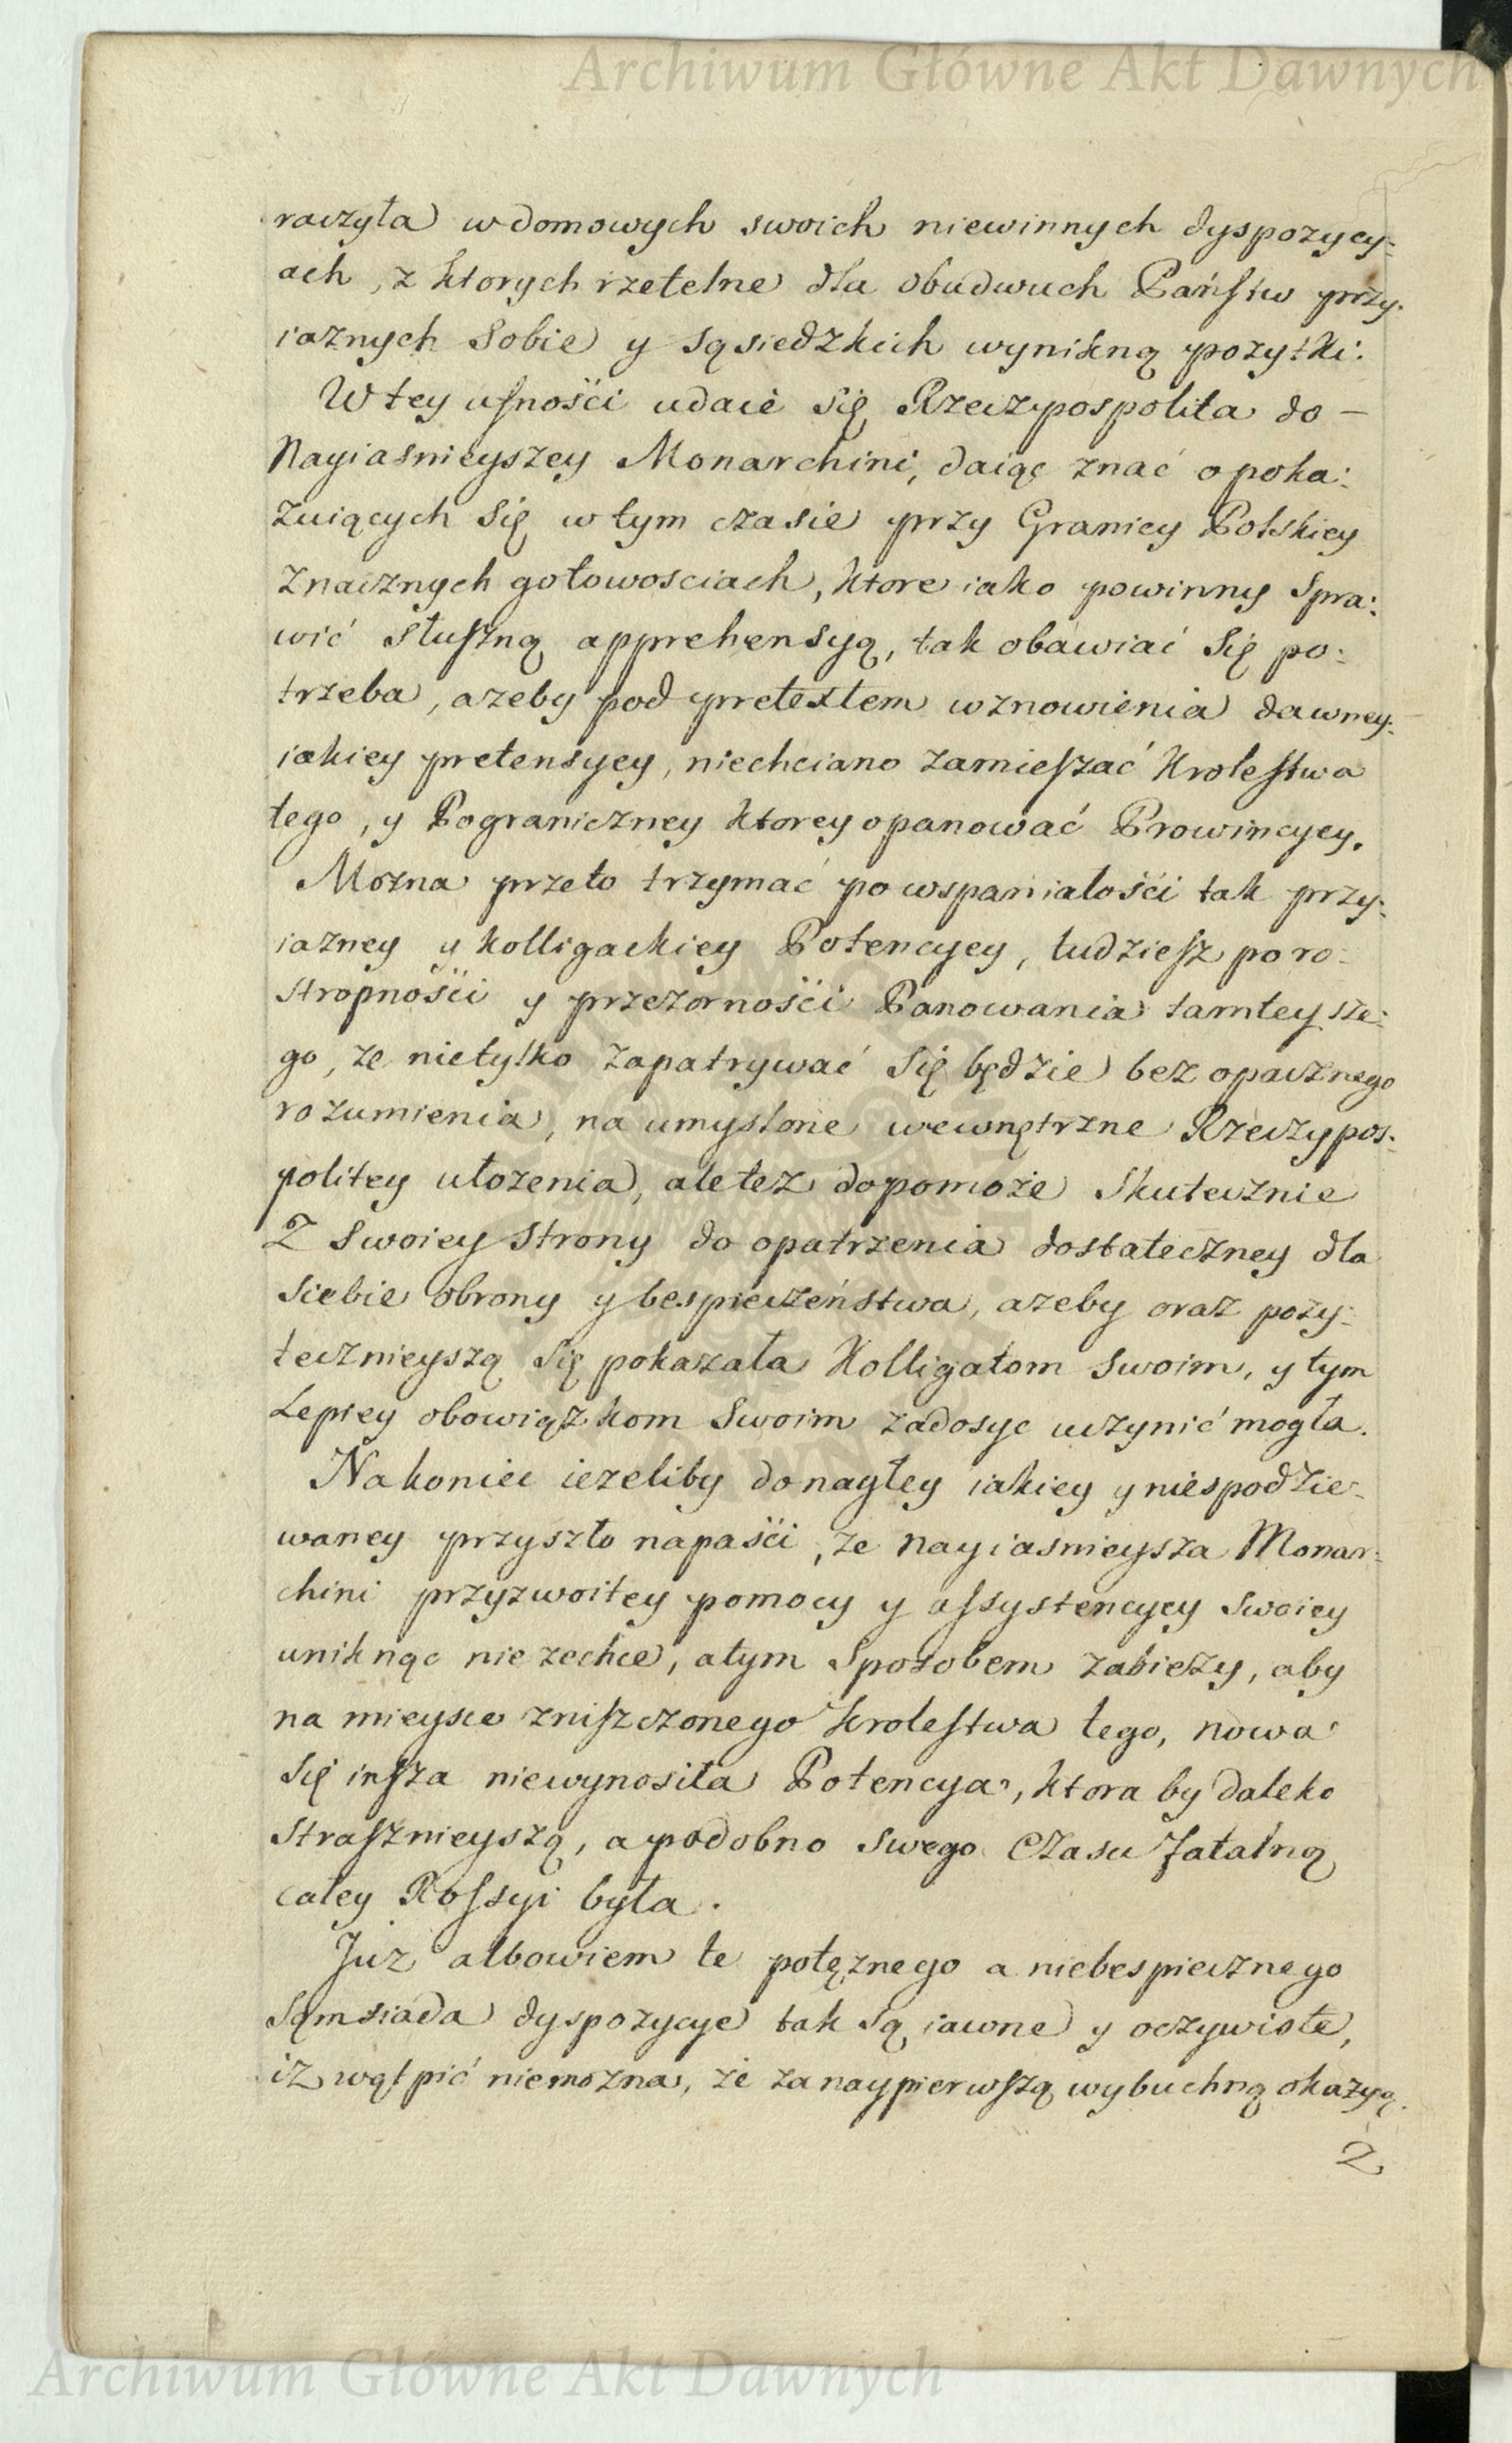 Archiwum Główne Akt Dawnych
raczyła w domowych swoich niewinnych dyspozycy:
ach, z ktorych rzetelne dla obudwuch Państw przy:
iaznych Sobie y sąsiedzkich wynikną pozytki:
W tey ufności udaie się Rzeczpospolita do –
Nayiaśnieyszey Monarchini, daiąc znać o poka:
zuiących się w tym czasie przy Granicy Polskiey
znacznych gotowosciach, ktore iako powinny Spra:
wić słuszną apprehensyą, tak obawiać się po:
trzeba, azeby pod pretextem wznowienia dawney:
iakiey pretensyey, niechciano zamieszać Krolestwa
tego, y Pograniczney ktorey opanować Prowincyey.
Mozna przeto trzymać po wspaniałości tak przy:
iazney y kolligackiey Potencyey, tudziesz po ro:
stropności y przezorności Panowania tamteysze:
go, ze nietylko zapatrywać się będzie bez opacznego
rozumienia, na umyslone wewnętrzne Rzeczypos:
politey ułozenia, ale tez dopomoże skutecznie
Z swoiey strony do opatrzenia dostateczney dla
siebie obrony y bespieczeństwa, azeby oraz pozy:
tecznieyszą się pokazała Kolligatom swoim, y tym
Lepiey obowiązkom Swoim zadosyc uczynić mogła.
Nakoniec iezeliby do nagłey iakiey y niespodzie:
waney przyszło napaści, ze Nayiasnieysza Monar:
chini przyzwoitey pomocy y assystencyey swoiey
uniknąc nie zechce, a tym sposobem zabiezy, aby
na mieysce zniszczonego Krolestwa tego, nowa
się insza niewynosiła Potencya, ktora by daleko
strasznieyszą, a podobno swego Czasu fatalną
całey Rossyi była.
Juz albowiem te potężnego a niebespiecznego
Sąmsiada dyspozycye tak są iawne y oczywiste,
iz wątpić niemozna, że za naypierwszą wybuchną okazyą.
2
Archiwum Główne Akt Dawnych